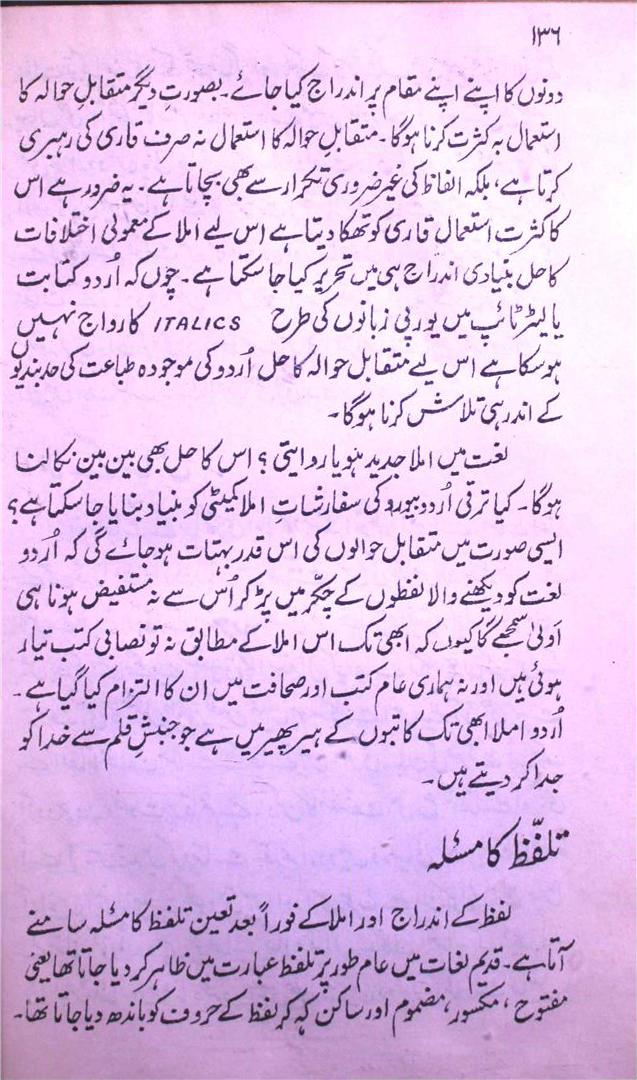 ۱۳۶
دونوں کا اپنے اپنے مقام پر اندراج کیا جائے۔ بصورتِ دیگر متقابل حوالہ کا
استعمال بہ کثرت کرنا ہوگا۔ متقابل حوالہ کا استعمال نہ صرف قاری کی رہبری
کرتا ہے، بلکہ الفاظ کی غیر ضروری تکرار سے بھی بچاتا ہے۔ یہ ضرور ہے اس
کا کثرت استعمال قاری کو تھکا دیتا ہے اس لیے املا کے معمولی اختلافات
کا حل بنیادی اندراج ہی میں تحریر کیا جا سکتا ہے۔ چوں کہ اُردو کتابت
یا لیٹر ٹائپ میں یورپی زبانوں کی طرح ITALICS کا رواج نہیں
ہو سکا ہے اس لیے متقابل حوالہ کا حل اُردو کی موجودہ طباعت کی حد بندیوں
کے اندر ہی تلاش کرنا ہوگا۔
لغت میں املا جدید ہو یا روایتی ؟ اس کا حل بھی بین بین نکالنا
ہوگا۔ کیا ترقی اُردو بیورو کی سفارشاتِ املا کمیٹی کو بنیاد بنایا جا سکتا ہے؟
ایسی صورت میں متقابل حوالوں کی اس قدر بہتات ہو جائے گی کہ اُردو
لغت کو دیکھنے والا لفظوں کے چکّر میں پڑ کر اُس سے نہ مستفیض ہونا ہی
اَولیٰ سمجھے گا کیوں کہ ابھی تک اس املا کے مطابق نہ تو نصابی کتب تیار
ہوئی ہیں اور نہ ہماری عام کتب اور صحافت میں ان کا التزام کیا گیا ہے۔
اُردو املا ابھی تک کاتبوں کے ہیر پھیر میں ہے جو جنبشِ قلم سے خدا کو
جدا کر دیتے ہیں۔
تلفّظ کا مسئلہ
لفظ کے اندراج اور املا کے فوراً بعد تعین تلفظ کا مسئلہ سامنے
آتا ہے۔ قدیم لغات میں عام طور پر تلفظ عبارت میں ظاہر کر دیا جاتا تھا یعنی
مفتوح ، مکسور، مضموم اور ساکن کہہ کر لفظ کے حروف کو باندھ دیا جاتا تھا۔